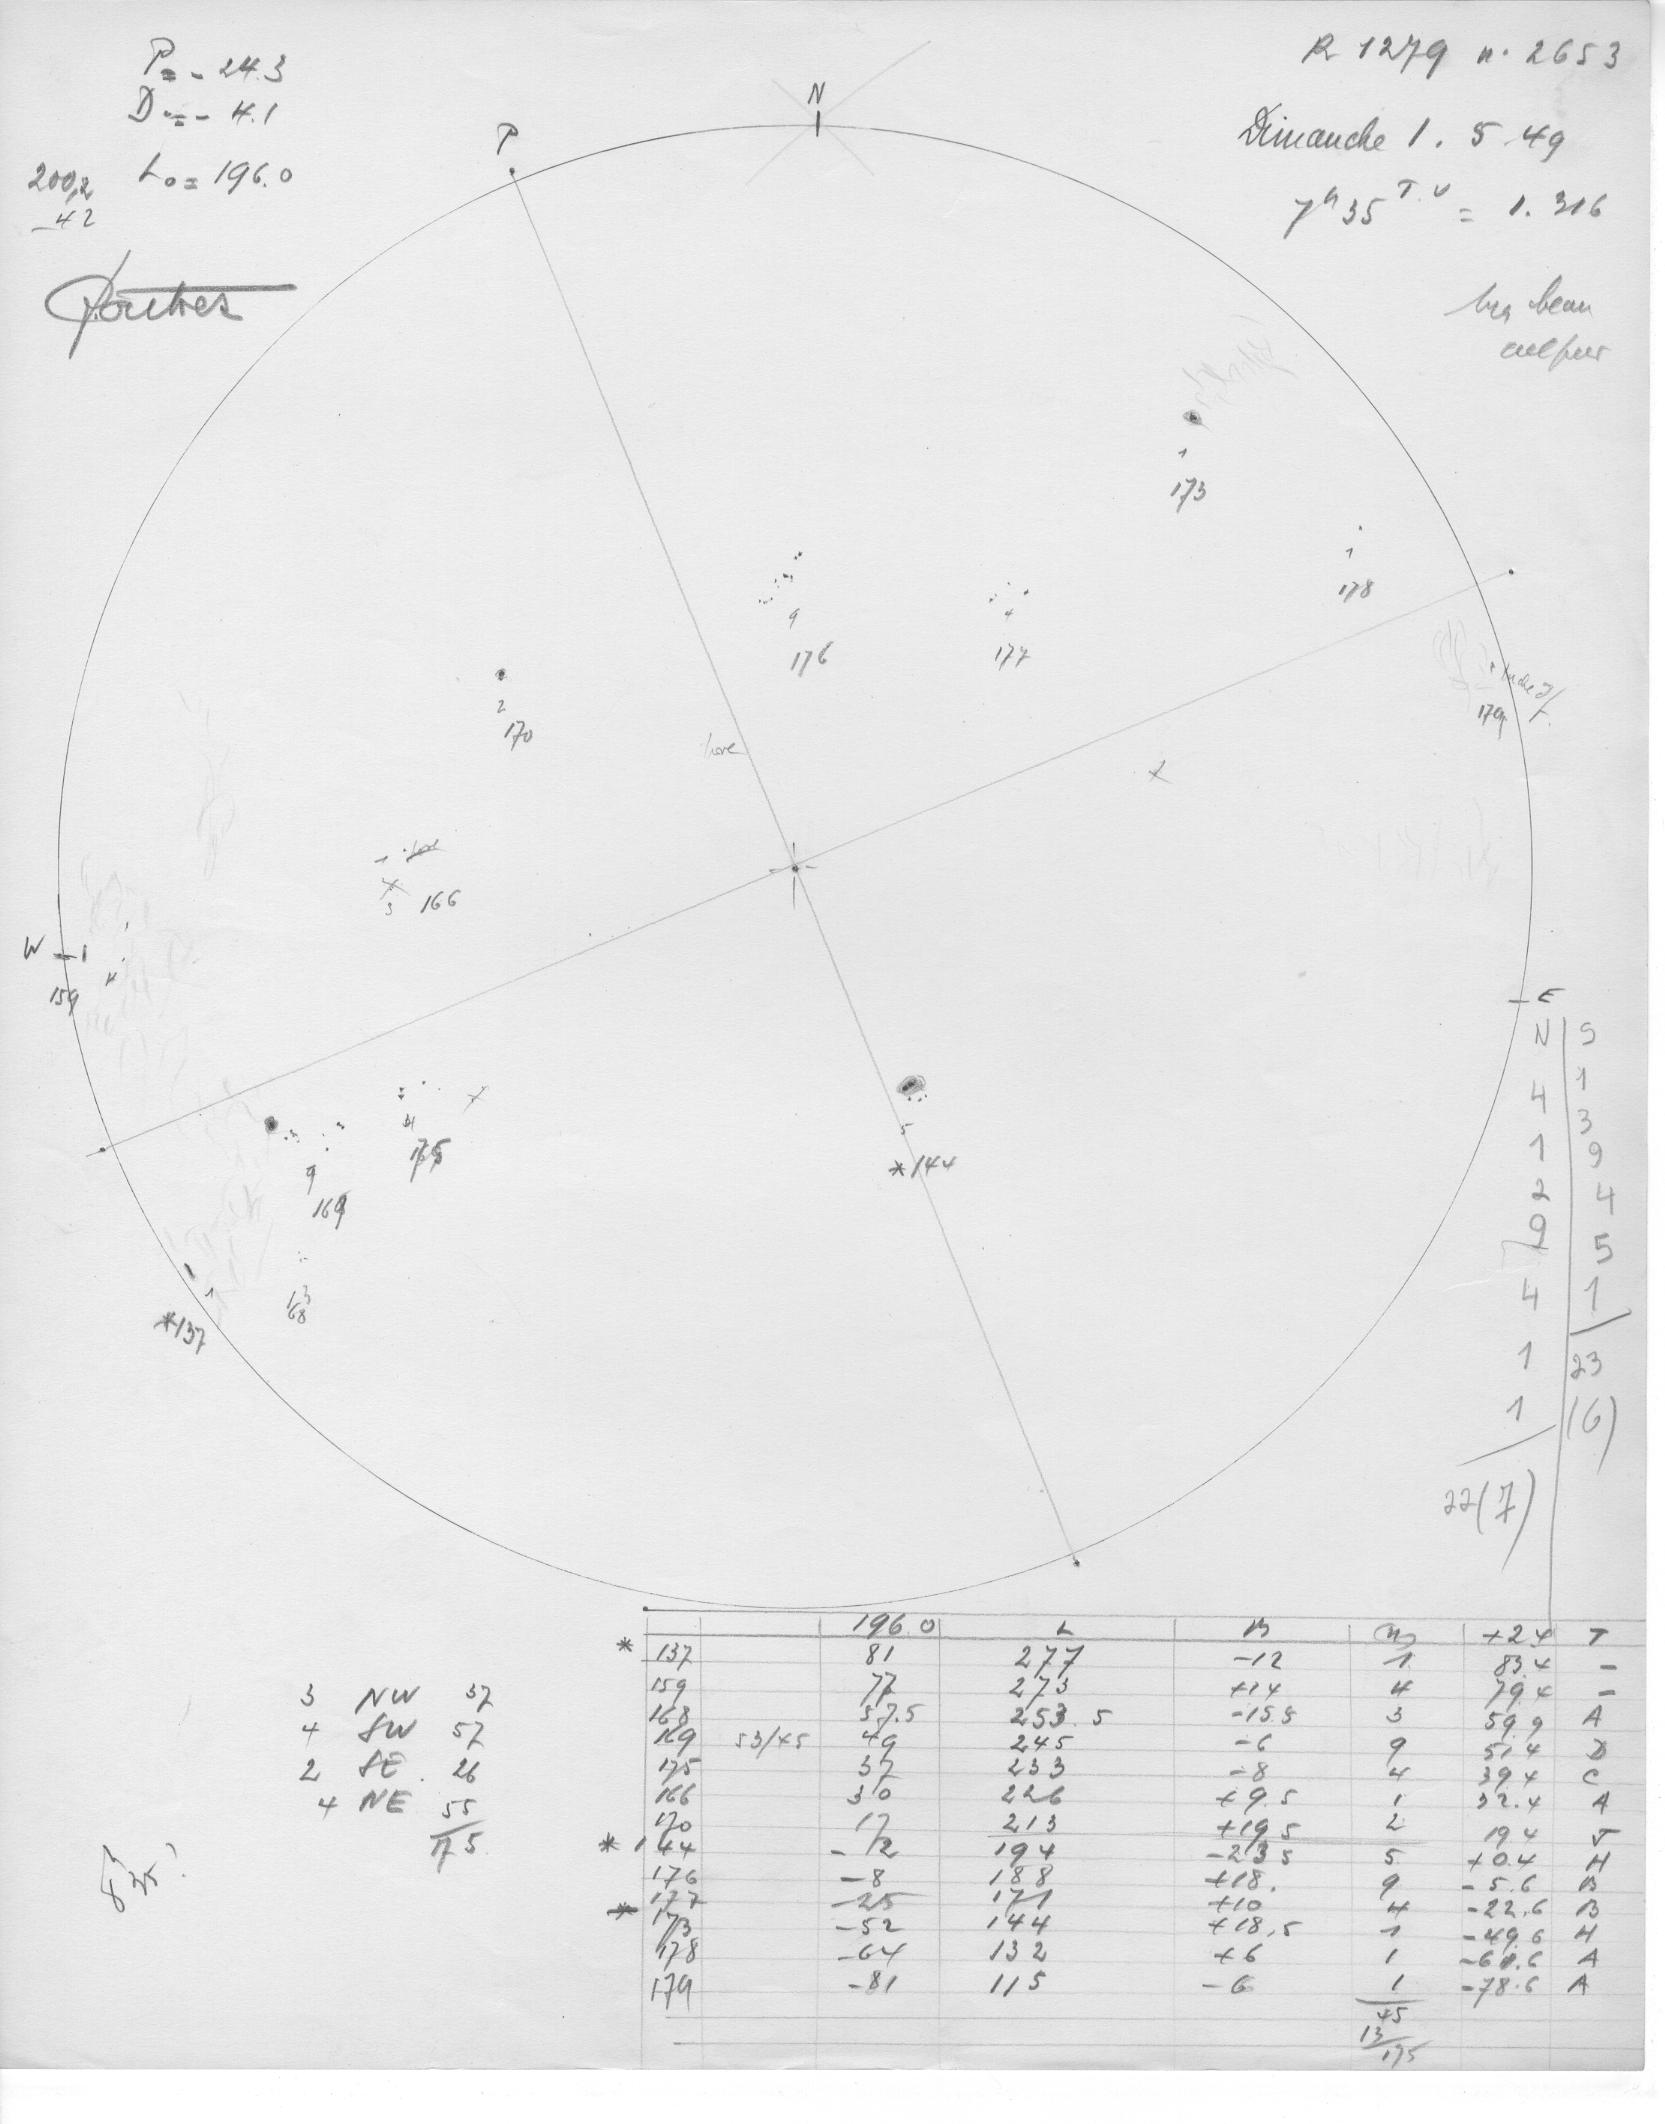 P = - 24.3
D = - 4.1
Lo = 196.0
200,2
- 4 2
R 1279 n. 2653
Dimanche 1. 5 49
7h 35 T.U = 1. 316
très beau
ciel pur
N
P
1
173
1
178
9
176
4
177
2
170
179
3 166
W
4
159
E
9
169
4
175
5
*144
3
168
1
*137
N S
4 1
1 3
2 9
9 4
4 5
1 1
1 23
22(7) (6)
196.0 L B +2.4 T
* 137 81 277 -12 1 83.4 -
159 77 273 +14 4 79.4 -
168 57.5 253.5 -15.5 3 59.9 A
169 53/45 49 245 -6 9 51.4 D
175 37 233 -8 4 39.4 C
166 30 226 +9.5 1 32.4 A
170 17 213 +19.5 2 19.4 J
* 144 -2 194 -23.5 5 +0.4 H
176 -8 188 +18. 9 -5.6 B
177 -25 171 +10 4 -22.6 B
* 173 -52 144 +18,5 1 -49.6 H
178 -64 132 +6 1 -61.6 A
179 -81 115 -6 1 -78.6 A
45
13
175
3 NW 37
4 SW 57
2 SE. 26
4 NE 55
175